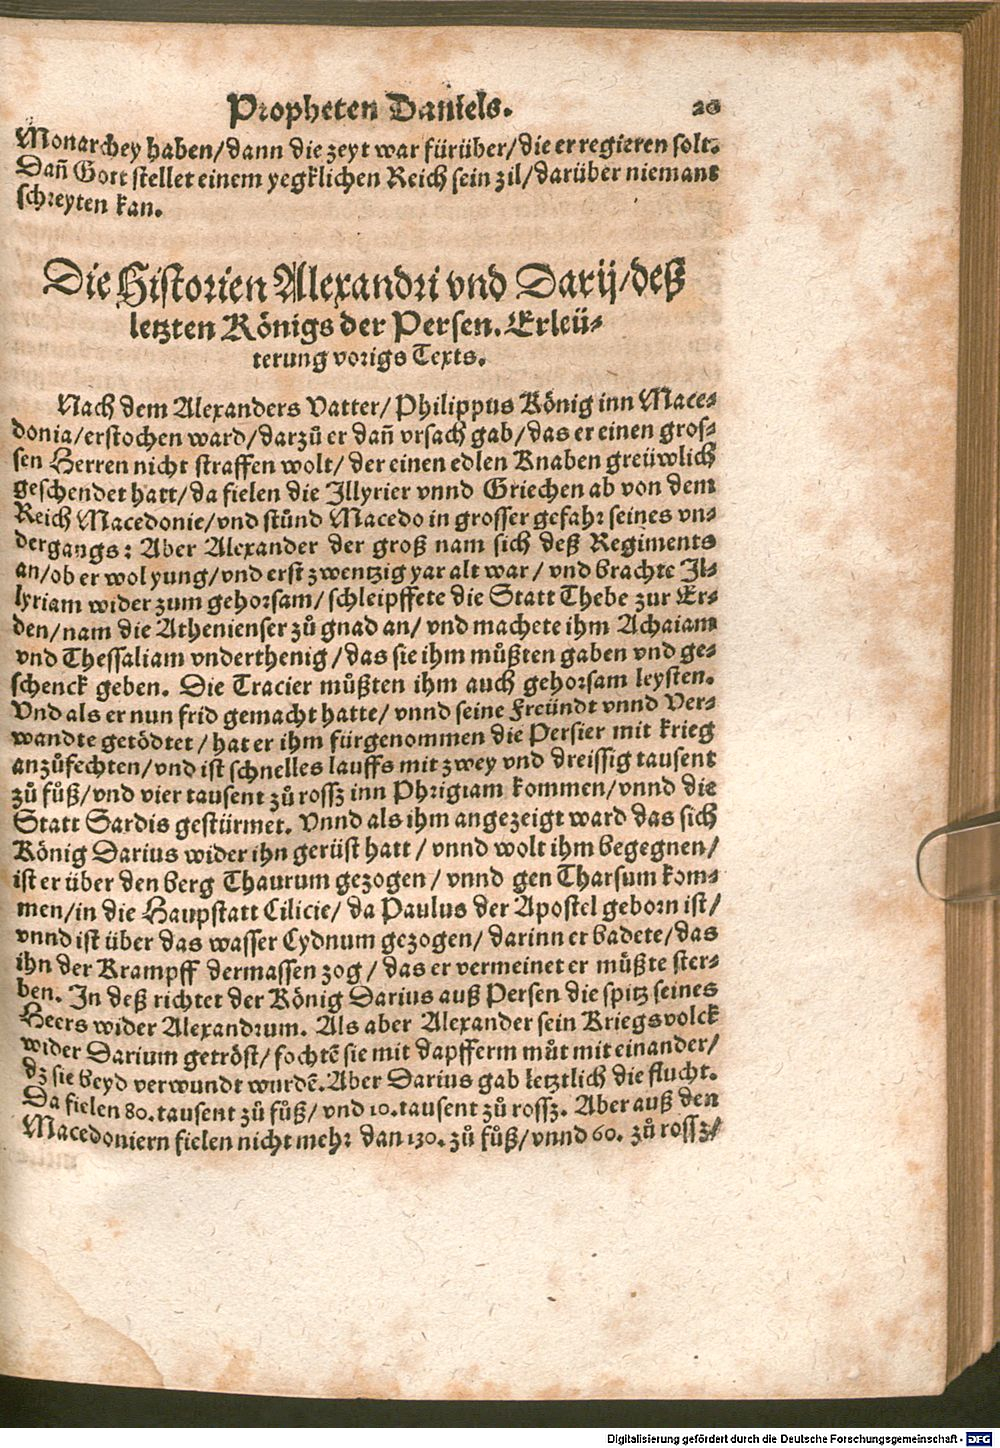 Propheten Daniels. 26
Monarchey haben/dann die zeyt war fürüber/die er regieren solt.
Dañ Gott stellet einem yegklichen Reich sein zil/darüber niemant
schreyten kan.
Die Historien Alexandri vnd Darij/deß
letzten Königs der Persen. Erleü-
terung vorigs Texts.
Nach dem Alexanders Vatter/Philippus König inn Mace-
donia/erstochen ward/darzů er dañ vrsach gab/das er einen gros-
sen Herren nicht straffen wolt/der einen edlen Knaben greüwlich
geschendet hatt/da fielen die Illyrier vnnd Griechen ab von dem
Reich Macedonie/vnd stůnd Macedo in grosser gefahr seines vn-
dergangs: Aber Alexander der groß nam sich deß Regiments
an/ob er wol yung/vnd erst zwentzig yar alt war/vnd brachte Il-
lyriam wider zum gehorsam/schleipffete die Statt Thebe zur Er-
den/nam die Athenienser zů gnad an/vnd machete ihm Achaiam
vnd Thessaliam vnderthenig/das sie ihm můßten gaben vnd ge-
schenck geben. Die Tracier můßten ihm auch gehorsam leysten.
Vnd als er nun frid gemacht hatte/vnnd seine Freündt vnnd Ver-
wandte getödtet/hat er ihm fürgenommen die Persier mit krieg
anzůfechten/vnd ist schnelles lauffs mit zwey vnd dreissig tausent
zů fůß/vnd vier tausent zů rossz inn Phrigiam kommen/vnnd die
Statt Sardis gestürmet. Vnnd als ihm angezeigt ward das sich
König Darius wider ihn gerüst hatt/vnnd wolt ihm begegnen/
ist er über den berg Thaurum gezogen/vnnd gen Tharsum kom-
men/in die Haupstatt Cilicie/da Paulus der Apostel geborn ist/
vnnd ist über das wasser Cydnum gezogen/darinn er badete/das
ihn der Krampff dermassen zog/das er vermeinet er můßte ster-
ben. In deß richtet der König Darius auß Persen die spitz seines
Heers wider Alexandrum. Als aber Alexander sein Kriegsvolck
wider Darium getröst/fochtē sie mit dapfferm můt mit einander/
dz sie beyd verwundt wurdē. Aber Darius gab letztlich die flucht.
Da fielen 80. tausent zů fůß/vnd 10. tausent zů rossz. Aber auß den
Macedoniern fielen nicht mehr dan 130. zů fůß/vnnd 60. zů rossz/
Digitalisierung gefördert durch die Deutsche Forschungsgemeinschaft - DFG